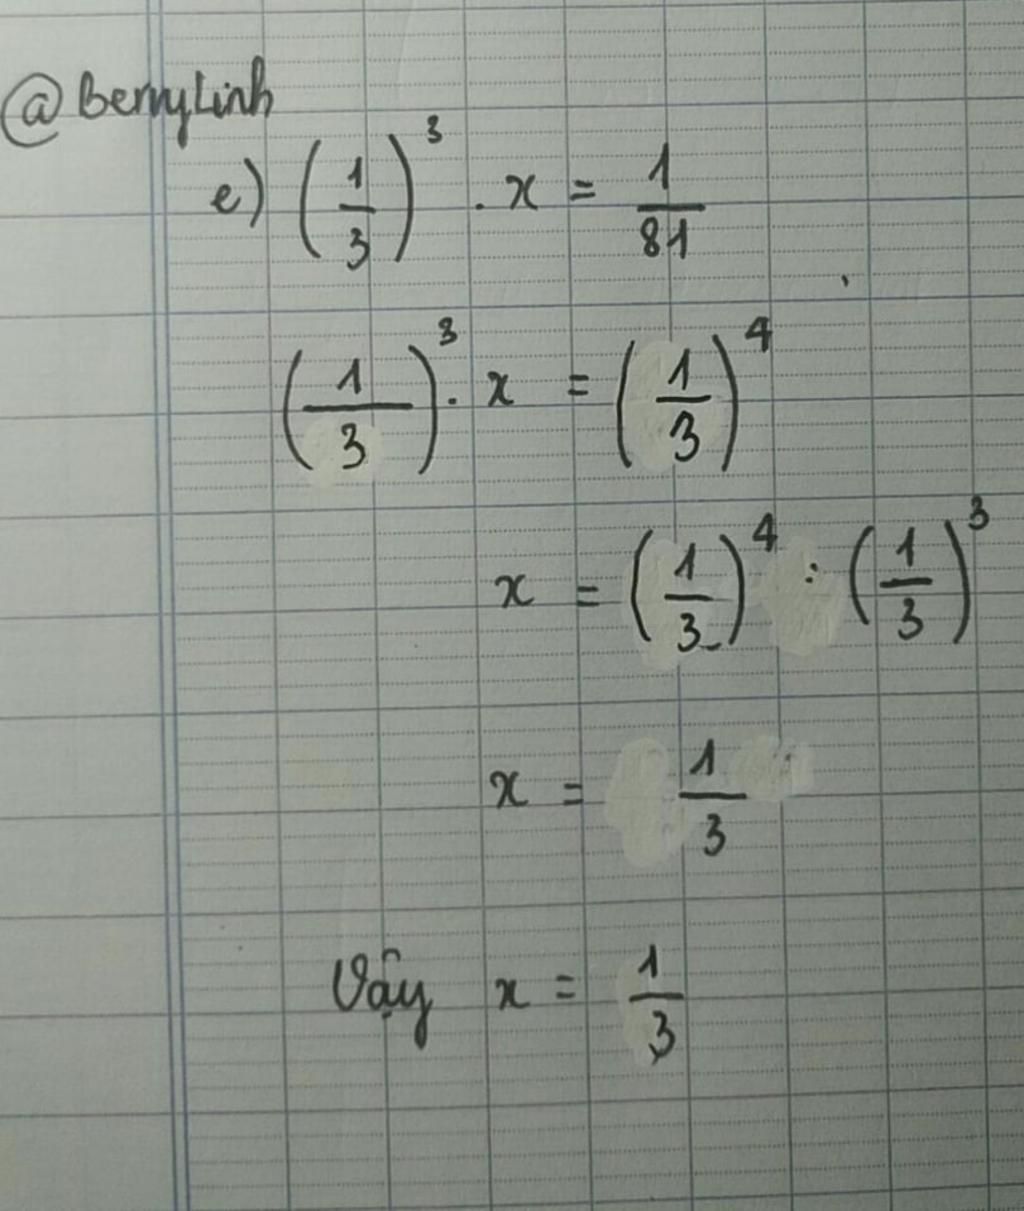 @BerryLinh
e) (1/3)³ . x = 1/81
(1/3)³ . x = (1/3)⁴
x = (1/3)⁴ : (1/3)³
x = 1/3
Vậy x = 1/3